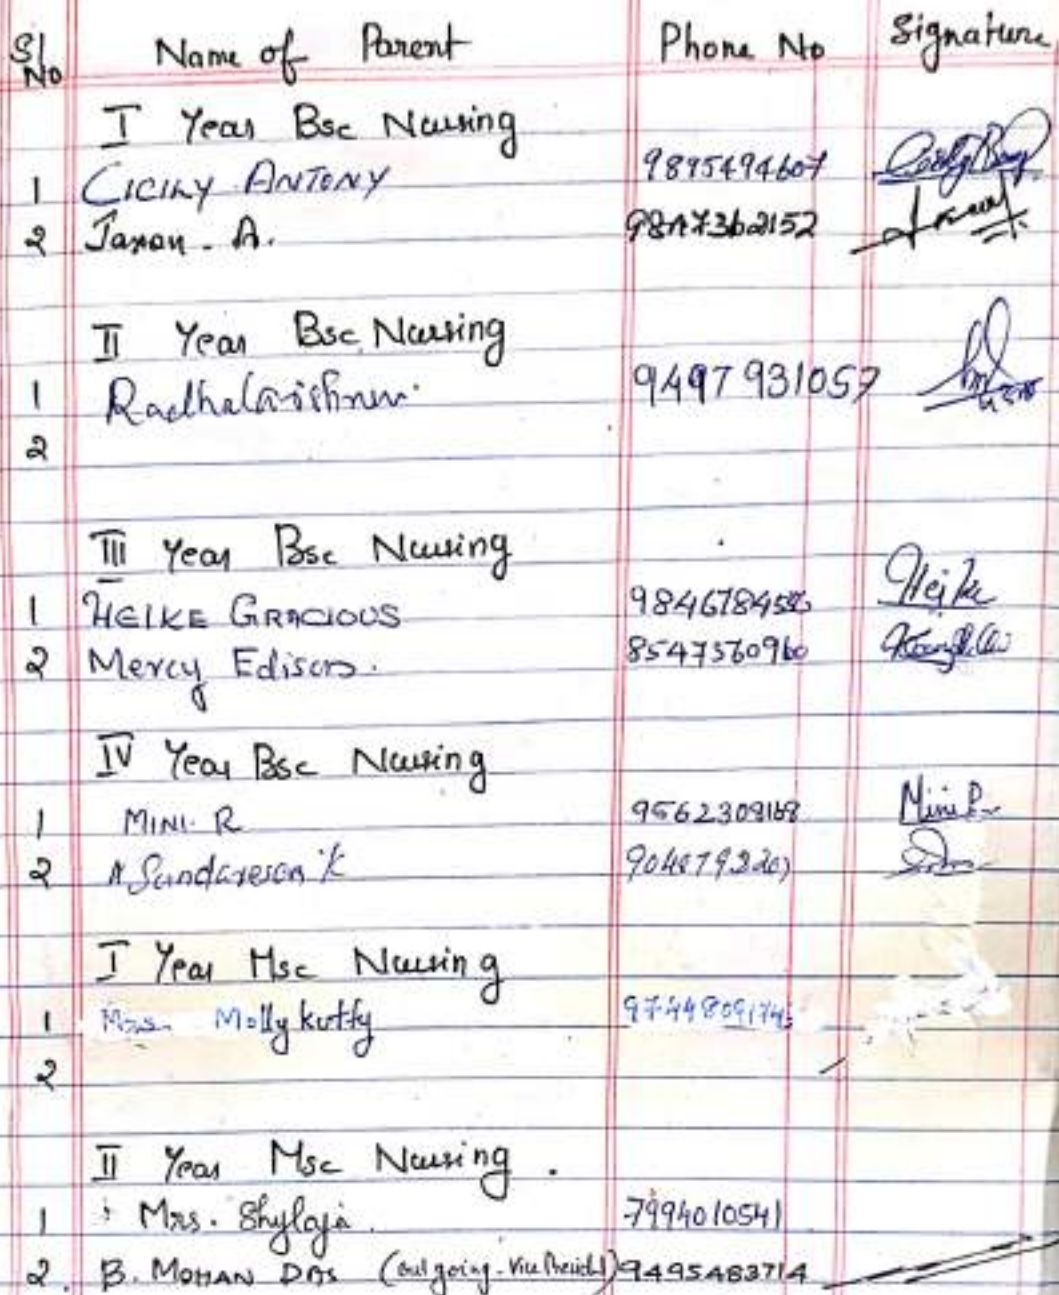 Sl No Name of Parent Phone No Signature
I Year Bsc Nursing
1 CICILY ANTONY 9895494607
2 A.
II Year Bsc Nursing
1 Radhakrishnan 9497931057
2
III Year Bsc Nursing
1 HEIKE GRACIOUS Heike
2 Mercy Edison. 8547560960
IV Year Bsc Nursing
1 MINI. R Mini R
2 Sundaresan K
I Year Msc Nursing
1 Mrs. Molly kutty
2
II Year Msc Nursing .
1 Mrs. Shylaja. 7994010541
2. B. MOHAN DAS (out going. Vice President) 9495483714